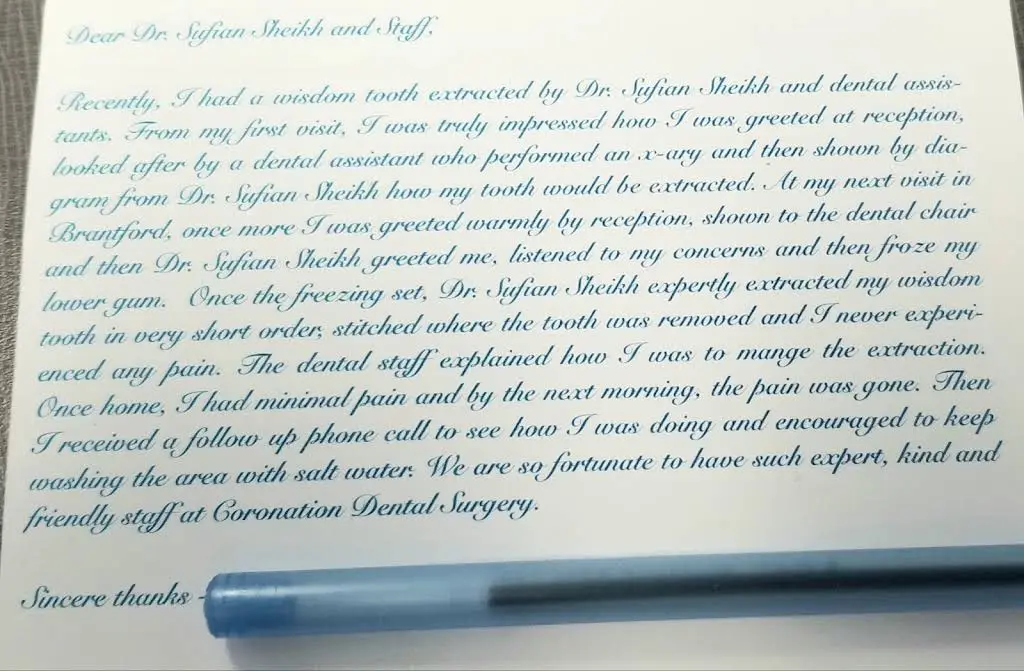 Dear Dr. Sufian Sheikh and Staff,
Recently, I had a wisdom tooth extracted by Dr. Sufian Sheikh and dental assis-
tants. From my first visit, I was truly impressed how I was greeted at reception,
looked after by a dental assistant who performed an x-ary and then shown by dia-
gram from Dr. Sufian Sheikh how my tooth would be extracted. At my next visit in
Brantford, once more I was greeted warmly by reception, shown to the dental chair
and then Dr. Sufian Sheikh greeted me, listened to my concerns and then froze my
lower gum. Once the freezing set, Dr. Sufian Sheikh expertly extracted my wisdom
tooth in very short order, stitched where the tooth was removed and I never experi-
enced any pain. The dental staff explained how I was to mange the extraction.
Once home, I had minimal pain and by the next morning, the pain was gone. Then
I received a follow up phone call to see how I was doing and encouraged to keep
washing the area with salt water. We are so fortunate to have such expert, kind and
friendly staff at Coronation Dental Surgery.
Sincere thanks -